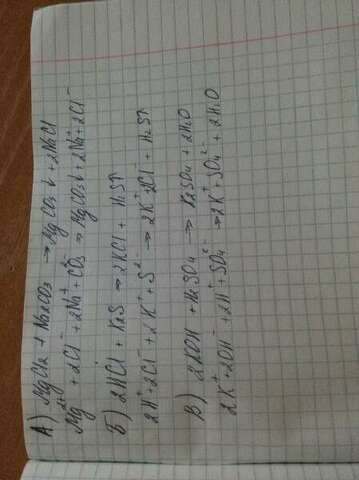 А) MgCl2 + Na2CO3 → MgCO3↓ + 2NaCl
Mg²⁺ + 2Cl⁻ + 2Na⁺ + CO3⁻ → MgCO3↓ + 2Na⁺ + 2Cl⁻
Б) 2HCl + K2S → 2KCl + H2S↑
2H⁺ + 2Cl⁻ + 2K⁺ + S²⁻ → 2K⁺ 2Cl⁻ + H2S↑
В) 2KOH + H2SO4 → K2SO4 + 2H2O
2K⁺ + 2OH⁻ + 2H⁺ + SO4²⁻ → 2K⁺ + SO4²⁻ + 2H2O